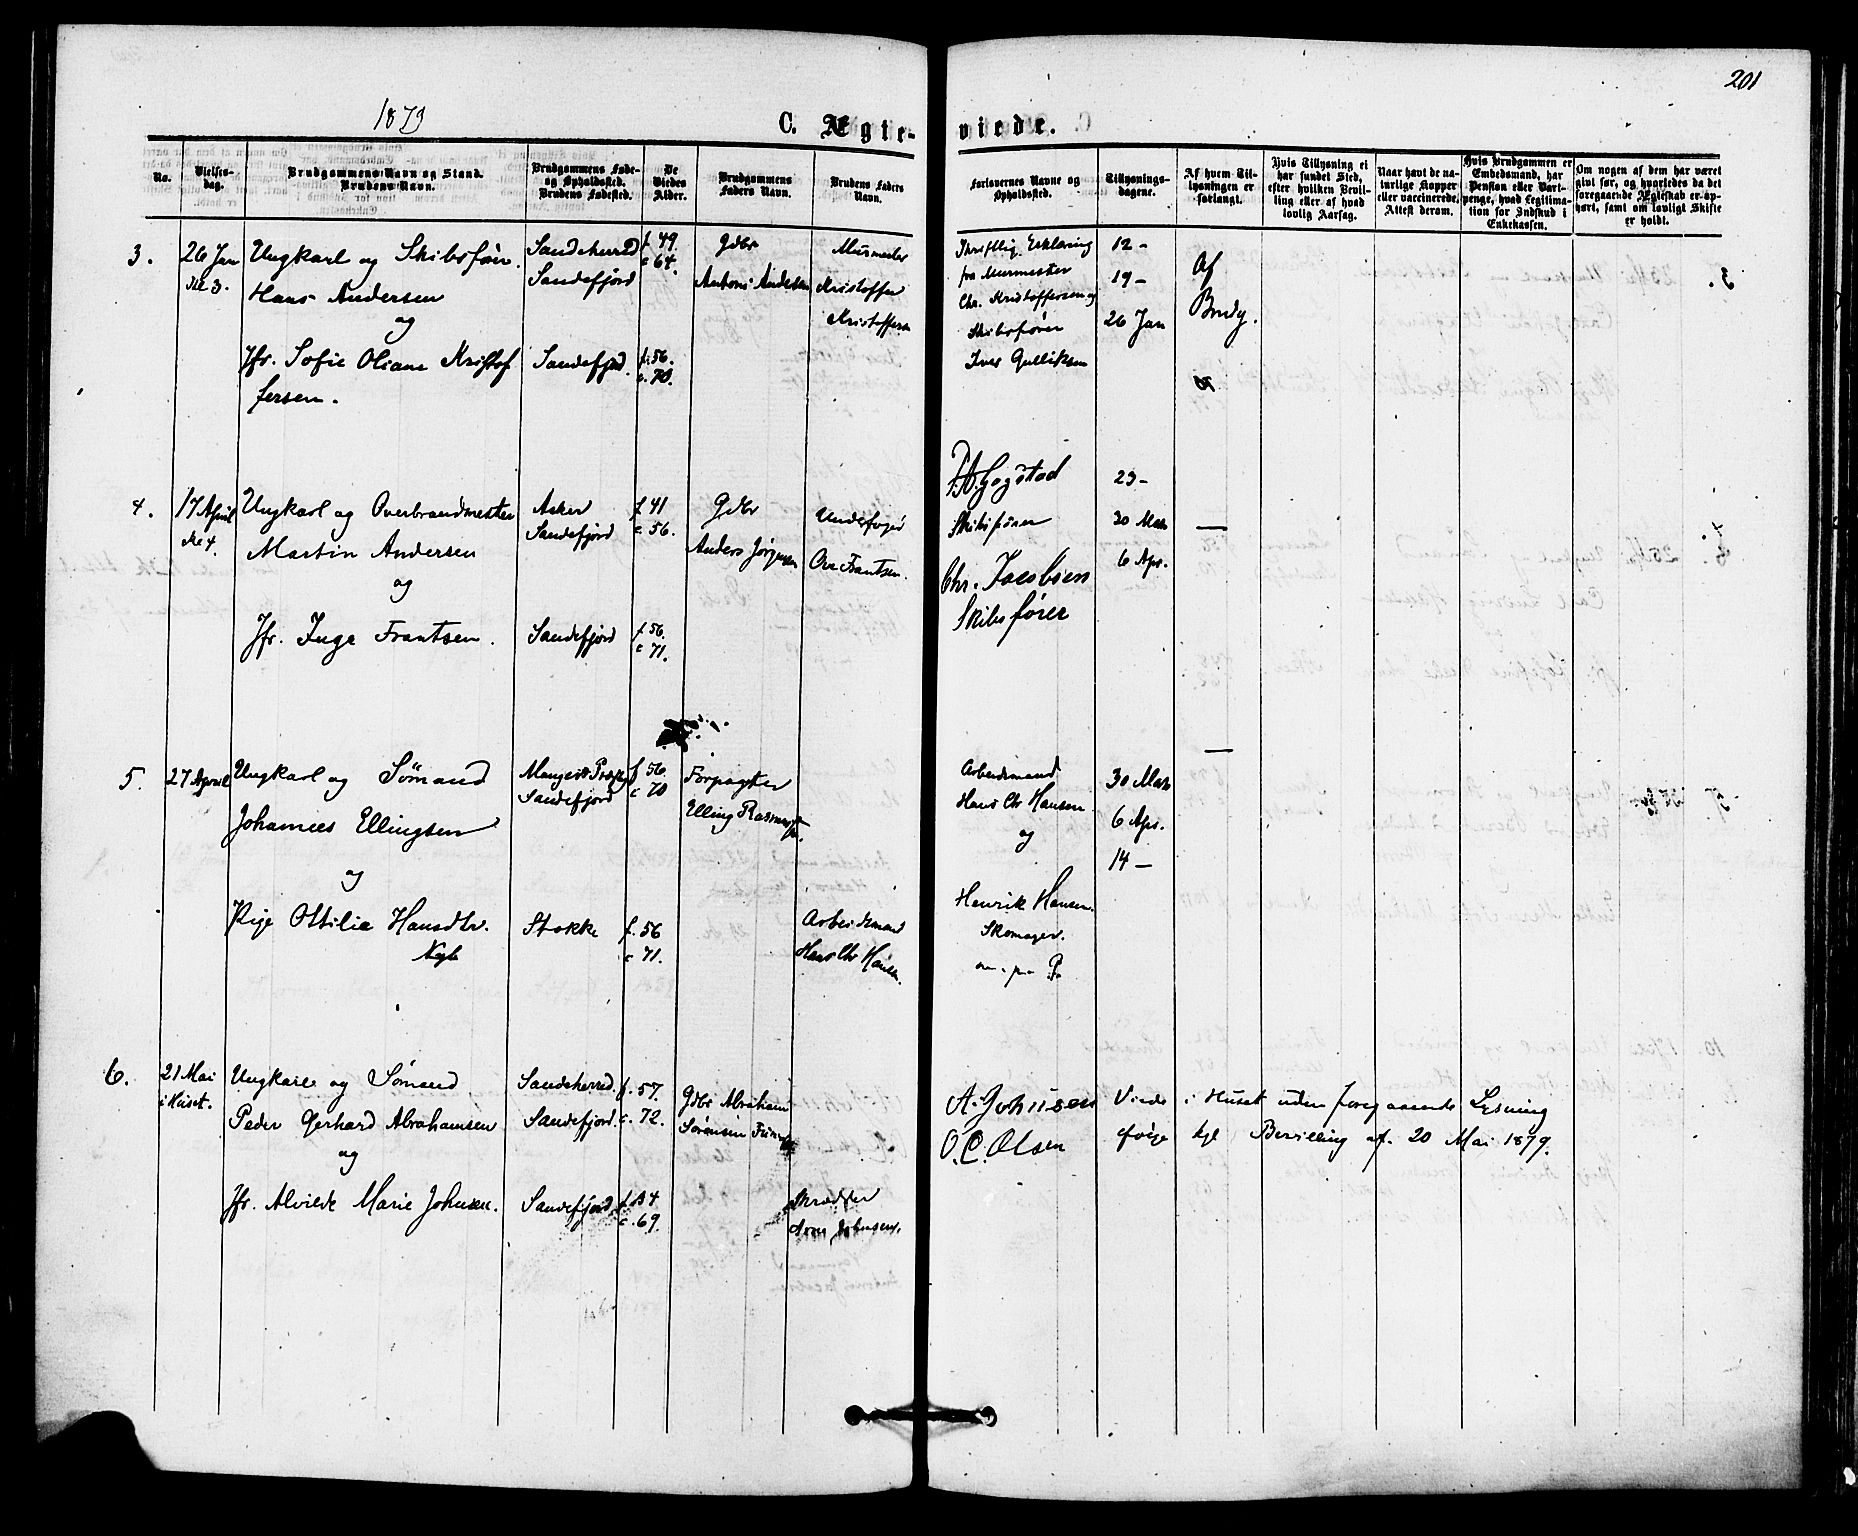 201
1879
C. Ægte-
viede.
No.
Vielses-
dag.
Brudgommens Navn og Stand.
Brudens Navn.
Brudgommens Føde-
og Opholdssted.
Brudens Fødested.
De
Viedes
Alder.
Brudgommens
Faders Navn.
Brudens Faders
Navn.
Forlovernes Navne og
Opholdssted.
Tillysnings-
dagene.
Af hvem Til-
lysningen er
forlangt.
Hvis Tillysning ei
har fundet Sted,
efter hvilken Bevil-
ling eller af hvad
lovlig Aarsag.
Naar havt de na-
turlige Kopper
eller vaccinerede,
Attest derom.
Hvis Brudgommen er
Embedsmand, har
Pension eller Vart-
penge, hvad Legitima-
tion for Indskud i
Enkekassen.
Om nogen af dem har været
givt før, og hvorledes da det
foregaaende Ægteskab er op-
hørt, samt om lovligt Skifte
er holdt.
3.
26 Jan
Kl 3.
Ungkarl og Skibsfører
Hans Andersen
og
Jfr. Sofie Oliane Kristof
fersen.
Sandeherred
Sandefjord
Sandefjord.
f. 49.
c 64.
f. 56.
c. 70.
Gdbr
Antoni Andersen
Murmester
Kristoffer
Kristoffersen
Skriftlig Erklæring
fra Murmester
Chr. Kristoffersen og
Skibsfører
Iver Gulliksen
12 –
19 –
26 Jan
Af
Brudg.
4.
17 April
Kl 4.
Ungkarl og Overbrandmester
Martin Andersen
og
Jfr. Inga Frantsen.
Asker
Sandefjord
Sandefjord
f. 41
c 56.
f. 56.
c 71.
Gdbr
Anders Jørgensen
Underfoged
Ove Frantsen.
F. A. Gogstad
Skibsfører
Chr. Jacobsen
Skibsfører
23 –
30 Mars
6 Apr.
—
5.
27 April
Ungkarl og Sømand
Johannes Ellingsen
og
Pige Ottilia Hansdtr.
Sandefjord
Stokke
f. 56
c 70
f. 56
c 71.
Forpagter
Elling Rasmussen.
Arbeidsmand
Hans Chr Hansen.
Arbeidsmand
Hans Chr Hansen
og
Henrik Hansen.
Skomager.
m. p. P.
30 Mars
6 Apr.
14 –
—
6.
21 Mai
i Huset.
Ungkarl og Sømand
Peder Gerhard Abrahamsen
og
Jfr. Alvilde Marie Johnsen.
Sandeherred.
Sandefjord.
Sandefjord.
f. 57.
c. 72.
f. 54
c. 69.
Gdbr Abraham
Sørensen
Skrædder
Johnsen.
A. Johnsen
O. C. Olsen
Viede i Huset uden foregaaende Lysning
ifølge kgl Bevilling af 20 Mai 1879.